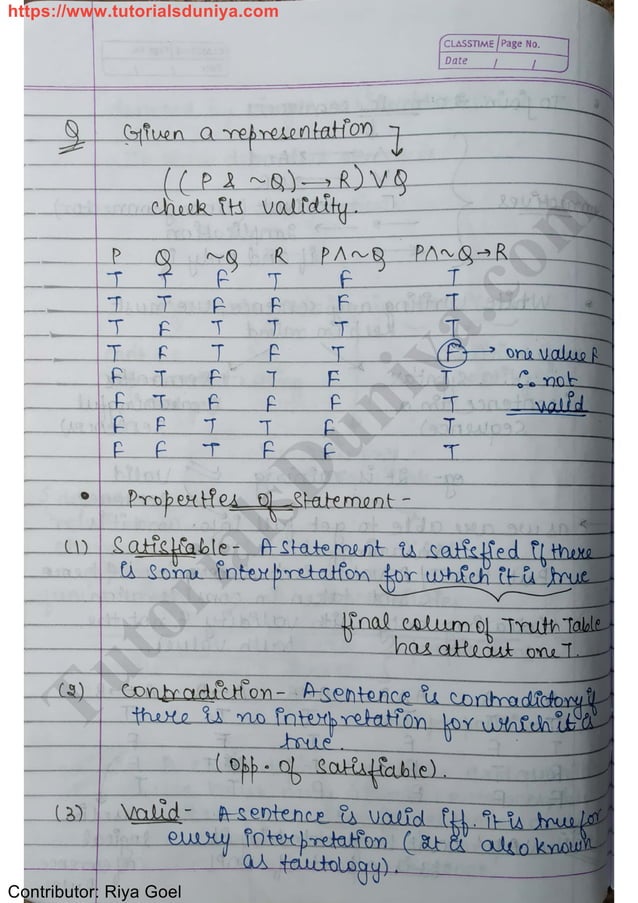 https://www.tutorialsduniya.com
CLASSTIME Page No.
Date / /
Q Given a representation
((P & ~Q) → R) V Q
check its validity.
P Q ~Q R P∧~Q P∧~Q→R
T T F T F T
T T F F F T
T F T T T T
T F T F T F → one value F
F T F T F T ∴ not
F T F F F T valid
F F T T F T
F F T F F T
• Properties of Statement -
(1) Satisfiable - A statement is satisfied if there
is some interpretation for which it is true
final colum of Truth Table
has atleast one T.
(2) Contradiction - A sentence is contradictory if
there is no interpretation for which it is
true.
(Opp. of Satisfiable).
(3) Valid - A sentence is valid iff. it is true for
every interpretation (It is also known
as tautology).
TutorialsDuniya.com
Contributor: Riya Goel